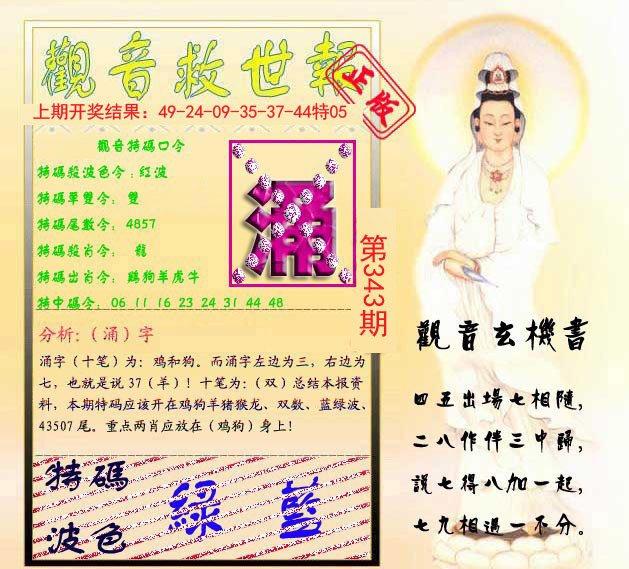 觀音救世報
正版
上期开奖结果：49-24-09-35-37-44特05
觀音特碼口令
特碼殺波色令：紅波
特碼單雙令： 雙
特碼尾數令： 4857
特碼殺肖令： 龍
特碼出肖令： 鷄狗羊虎牛
特中碼令： 06 11 16 23 24 31 44 48
涌
第343期
分析：（涌）字
涌字（十笔）为：鸡和狗。而涌字左边为三，右边为
七，也就是说37（羊）！十笔为：（双）总结本报资
料，本期特码应该开在鸡狗羊猪猴龙、双数、蓝绿波、
43507尾。重点两肖应放在（鸡狗）身上！
特碼
波色
綠 藍
觀音玄機書
四五出場七相隨，
二八作伴三中歸，
說七得八加一起，
七九相遇一不分。